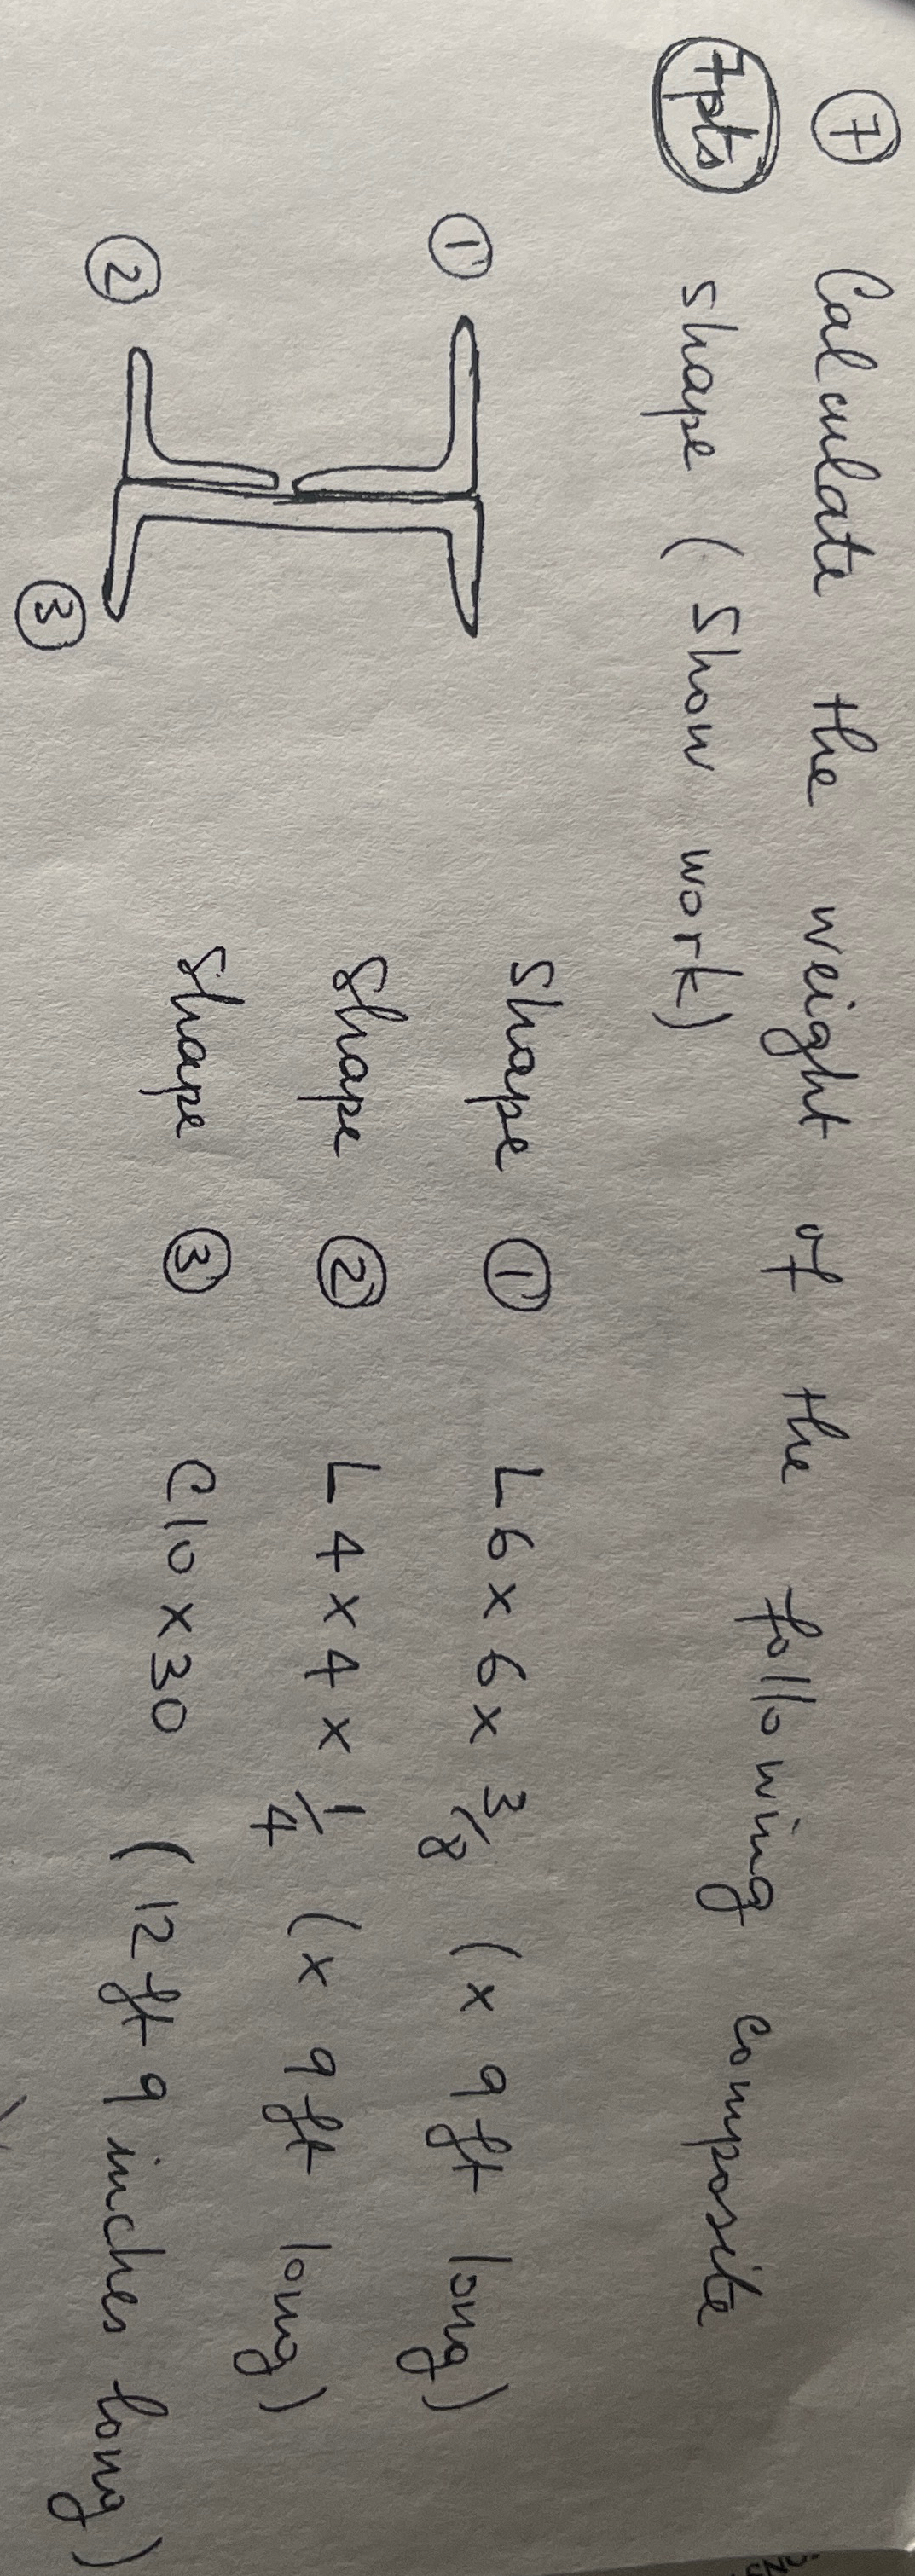 ⑦ Calculate the weight of the following composite
7pts shape (Show work)
①
②
③
Shape ① L6 x 6 x 3/8 (x 9 ft long)
Shape ② L 4 x 4 x 1/4 (x 9 ft long)
Shape ③ C10 x 30 (12 ft 9 inches long)